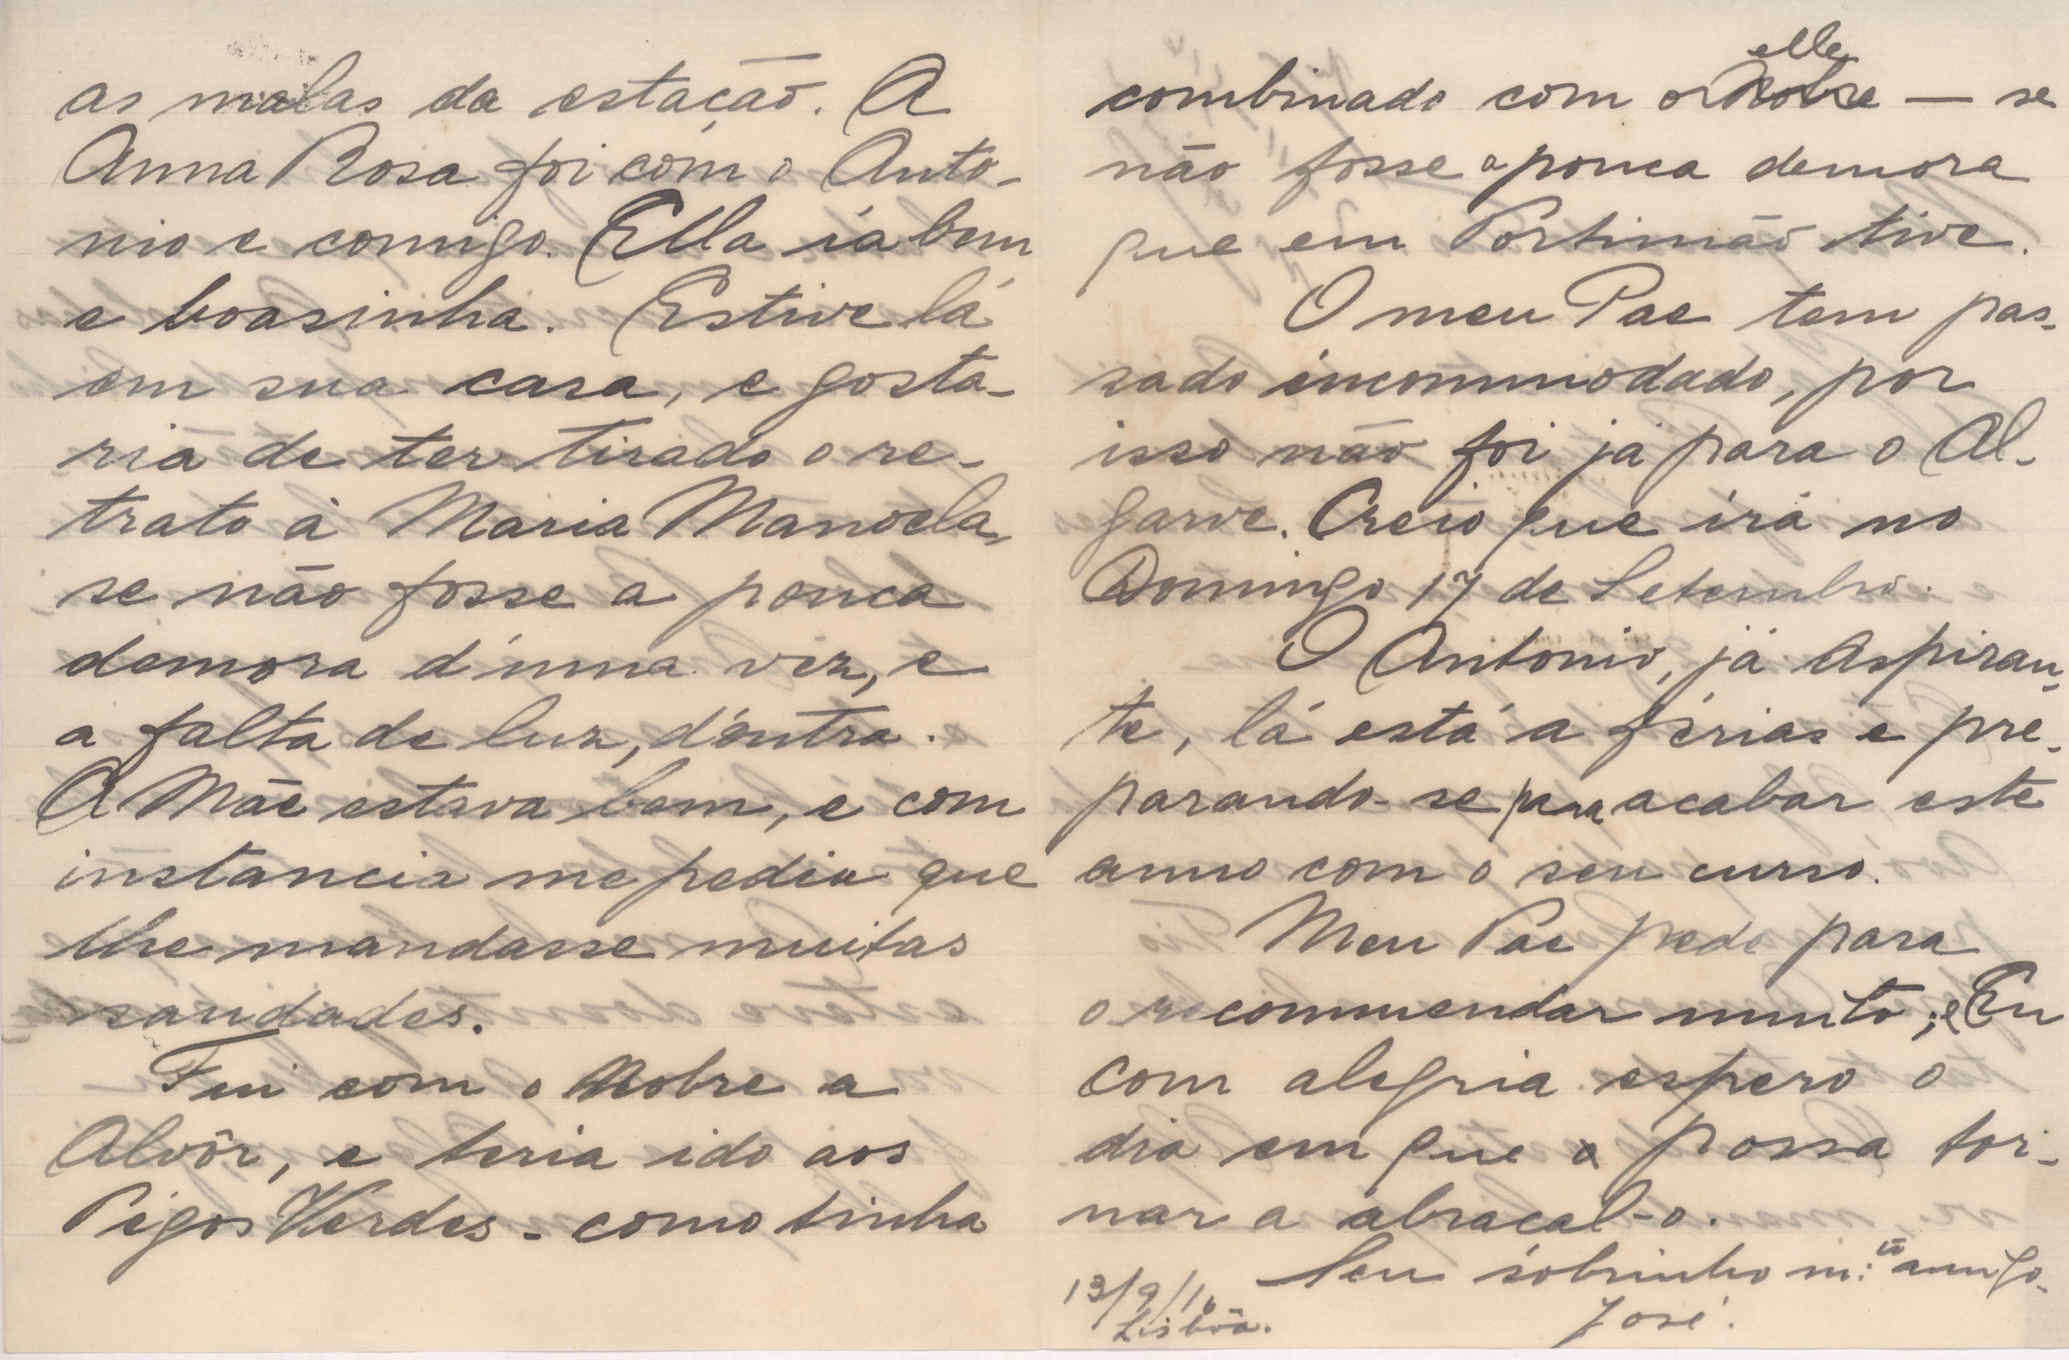 as malas da estação. A
Anna Rosa foi com o Anto-
nio e comigo. Ella ia bem
e boasinha. Estive lá
em sua casa, e gosta-
ria de ter tirado o re-
trato á Maria Manoela,
se não fosse a pouca
demora d'uma vez, e
a falta de luz, d'outra.
A Mãe estava bem, e com
instancia me pediu que
lhe mandasse muitas
saudades.
Fui com o Nobre a
Alvôr, e teria ido aos
Pégos Verdes - como tinha
combinado com elle — se
não fosse a pouca demora
que em Portimão tive.
O meu Pae tem pas-
sado incommodado, por
isso não foi já para o Al-
garve. Creio que irá no
Domingo 17 de Setembro.
O Antonio, já Aspiran-
te, lá está a férias e pre-
parando-se para acabar este
anno com o seu curso.
Meu Pae pede para
o recommendar muito; e Eu
com alegria espero o
dia em que o possa tor-
nar a abraçal-o.
Seu sobrinho m:to amigo.
José.
13/9/16
Lisbôa.